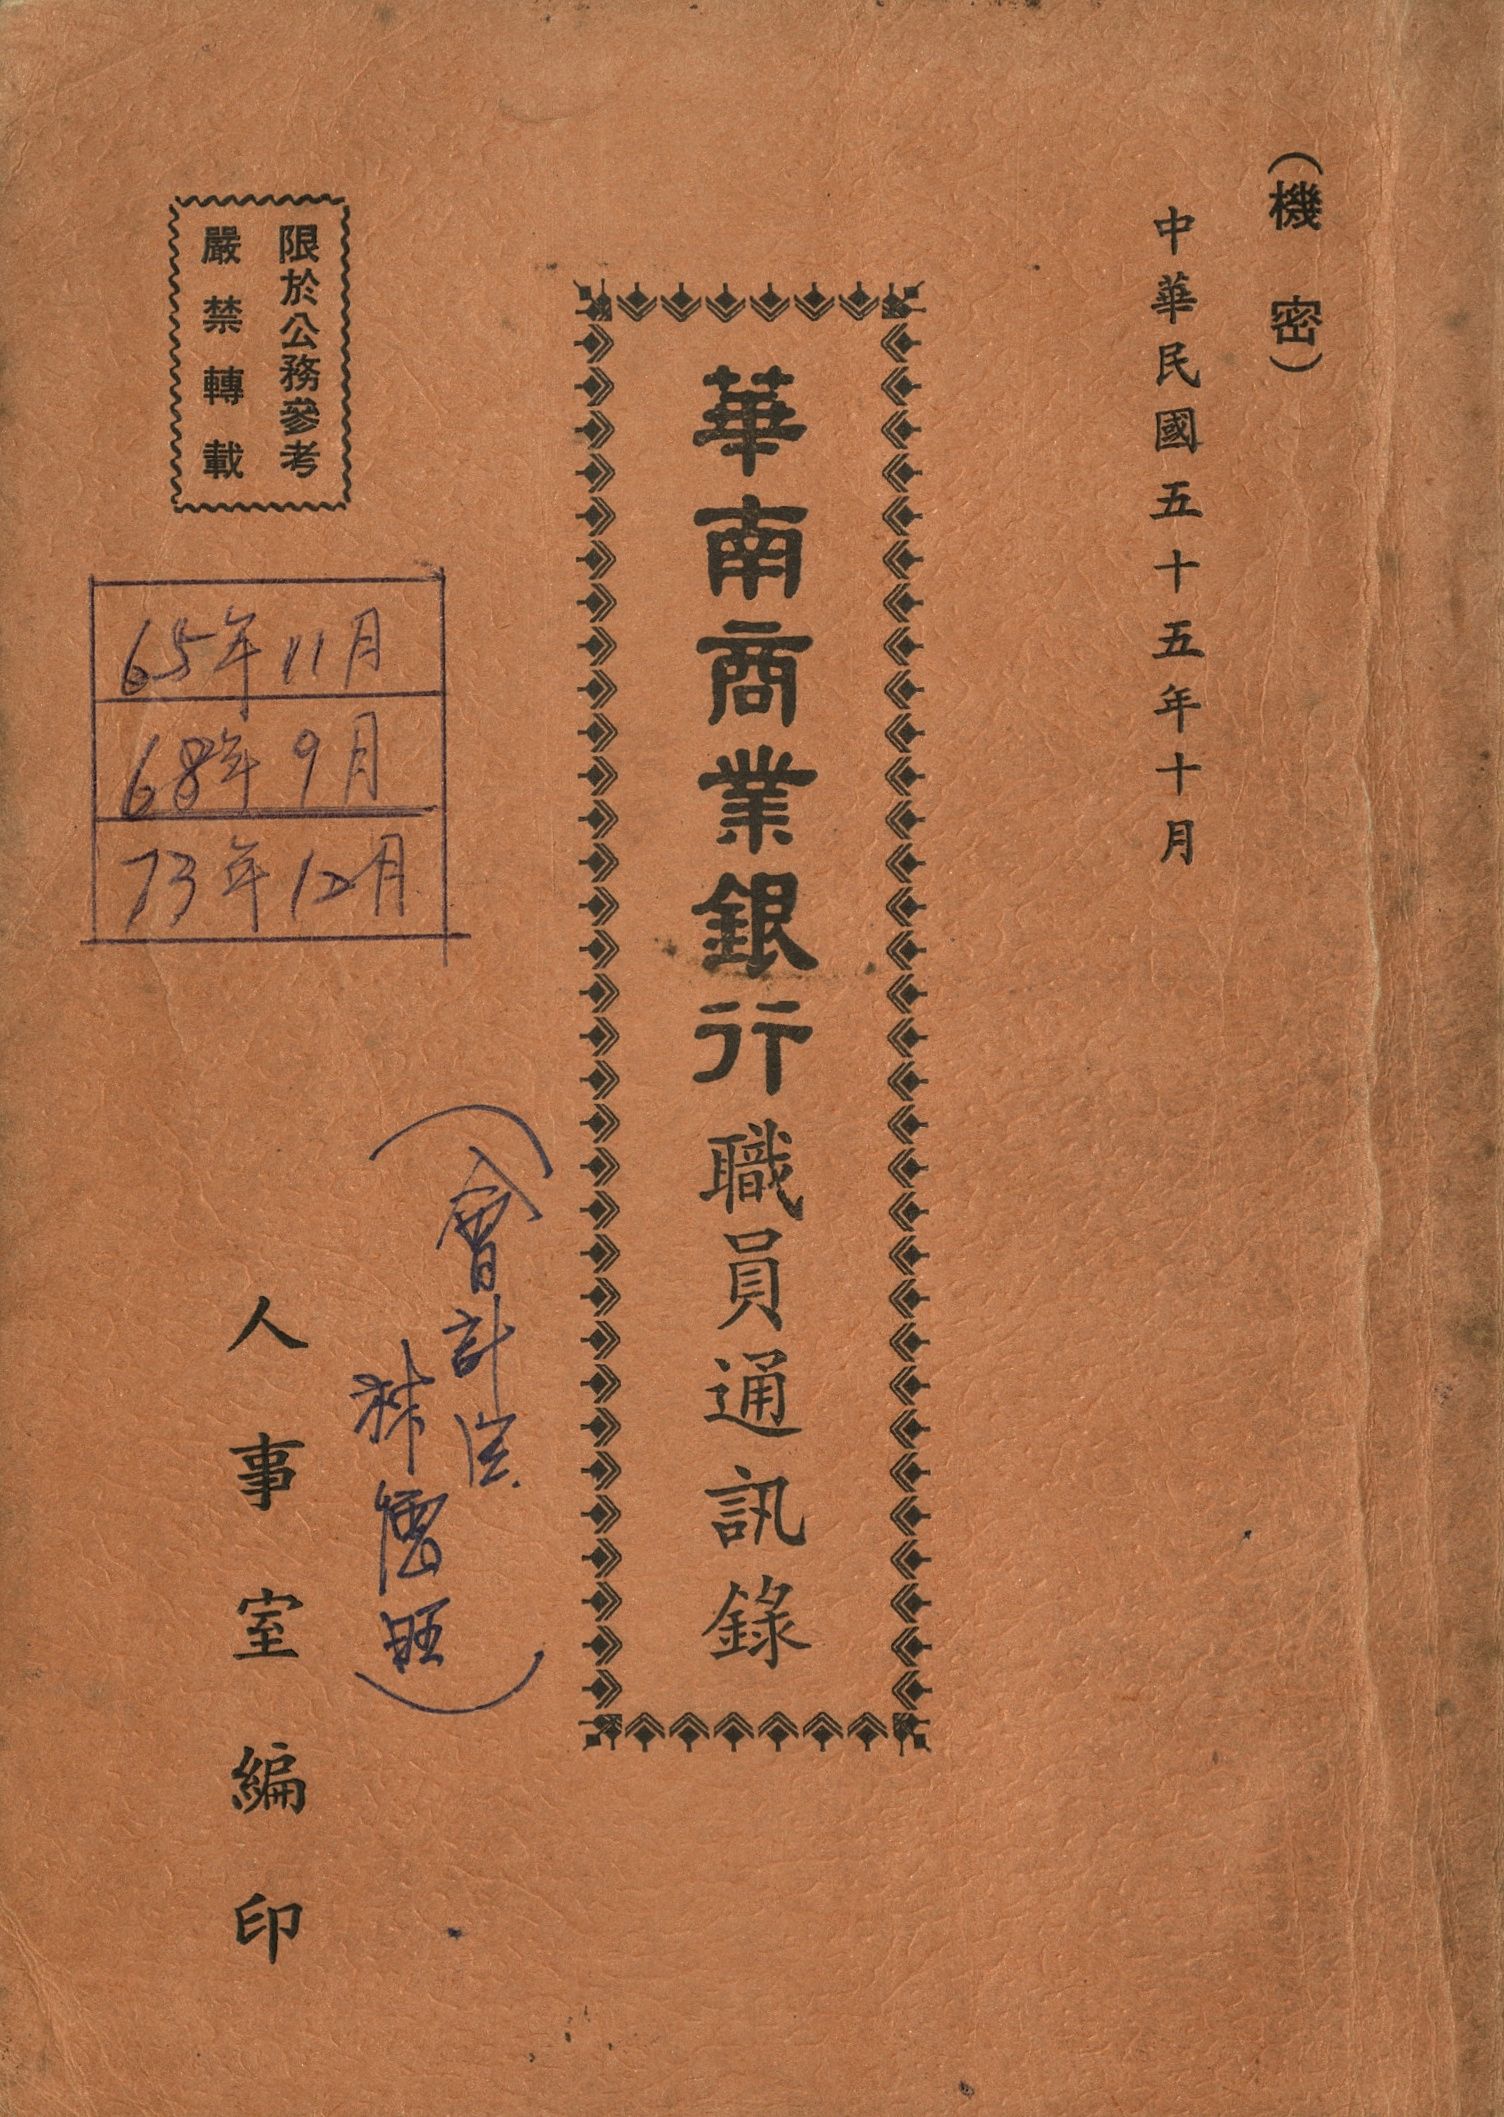 （機密）
中華民國五十五年十月
華南商業銀行職員通訊錄
限於公務參考
嚴禁轉載
65年11月
68年9月
73年12月
（會計
林
旺）
人事室編印